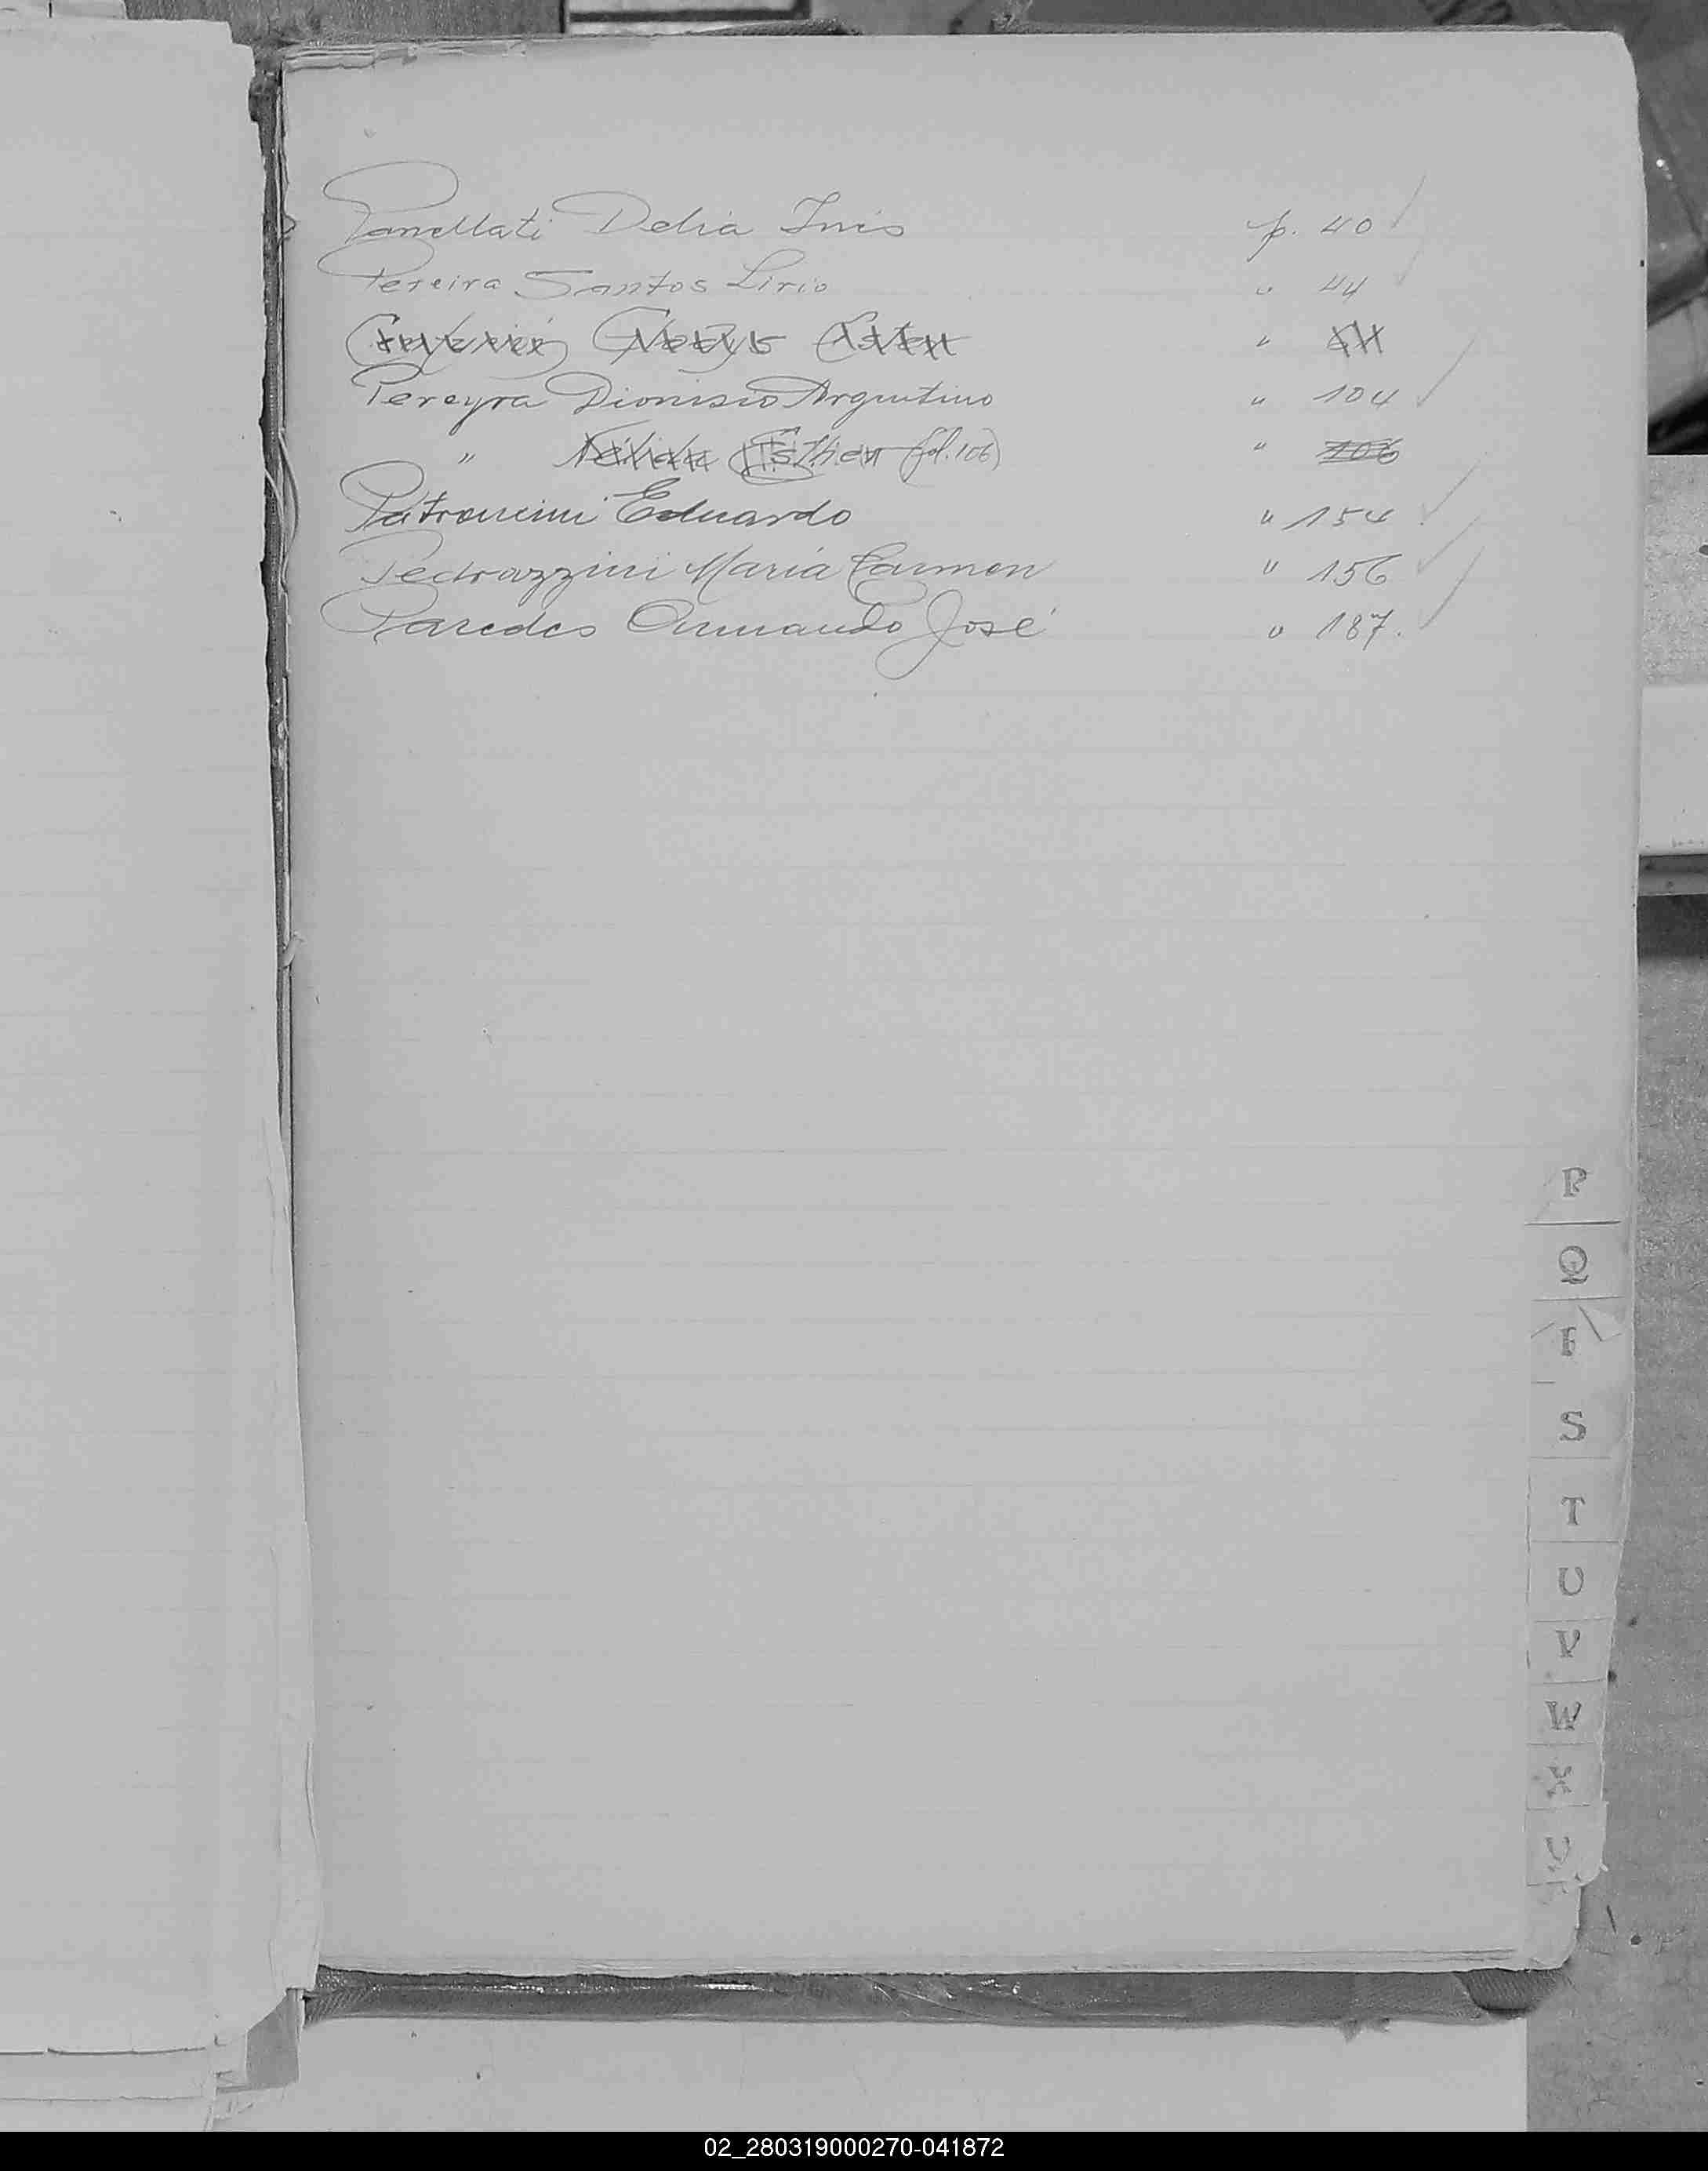 Panellati Delia Inés p. 40
Pereira Santos Lirio " 44
"
Pereyra Dionisio Argentino " 104
" Nélida Esther (fol. 106) " 106
Patroncini Eduardo " 154
Pedrazzini María Carmen " 156
Paredes Armando José " 187.
P
Q
R
S
T
U
V
W
X
02_280319000270-041872